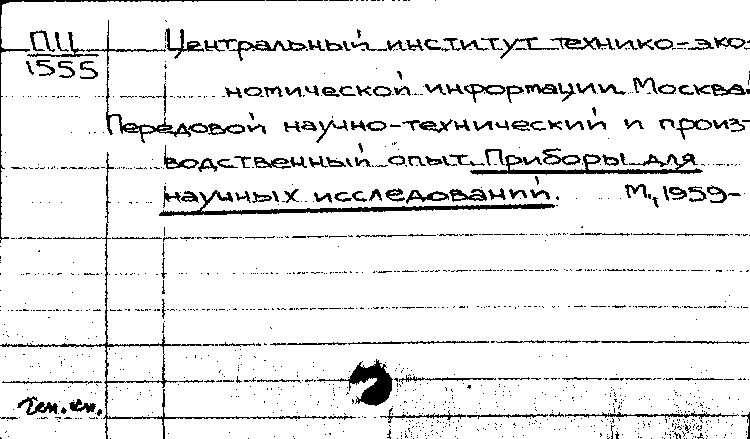 ПЦ
1555
Центральный институт технико-эко-
номической информации. Москва.
Передовой научно-технический и произ-
водственный опыт. Приборы для
научных исследований. М., 1959-